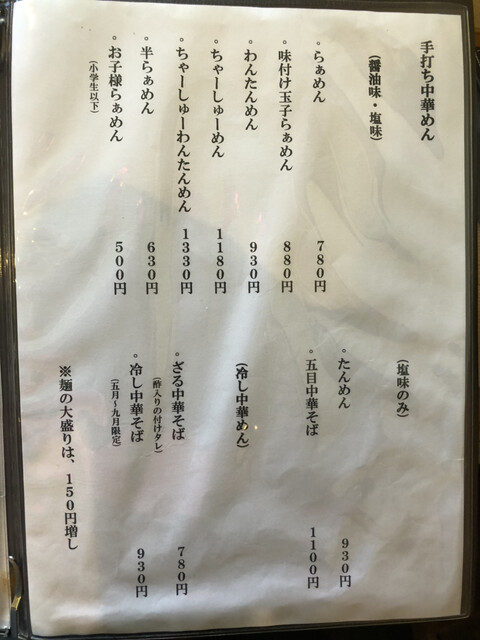 手打ち中華めん
(醤油味・塩味)
。らぁめん 780円
。味付け玉子らぁめん 880円
。わんたんめん 930円
。ちゃーしゅーめん 1180円
。ちゃーしゅーわんたんめん 1330円
。半らぁめん 630円
。お子様らぁめん 500円
(小学生以下)
(塩味のみ)
。たんめん 930円
。五目中華そば 1100円
(冷し中華めん)
。ざる中華そば 780円
(酢入りの付けタレ)
。冷し中華そば 930円
(五月〜九月限定)
※麺の大盛りは、150円増し